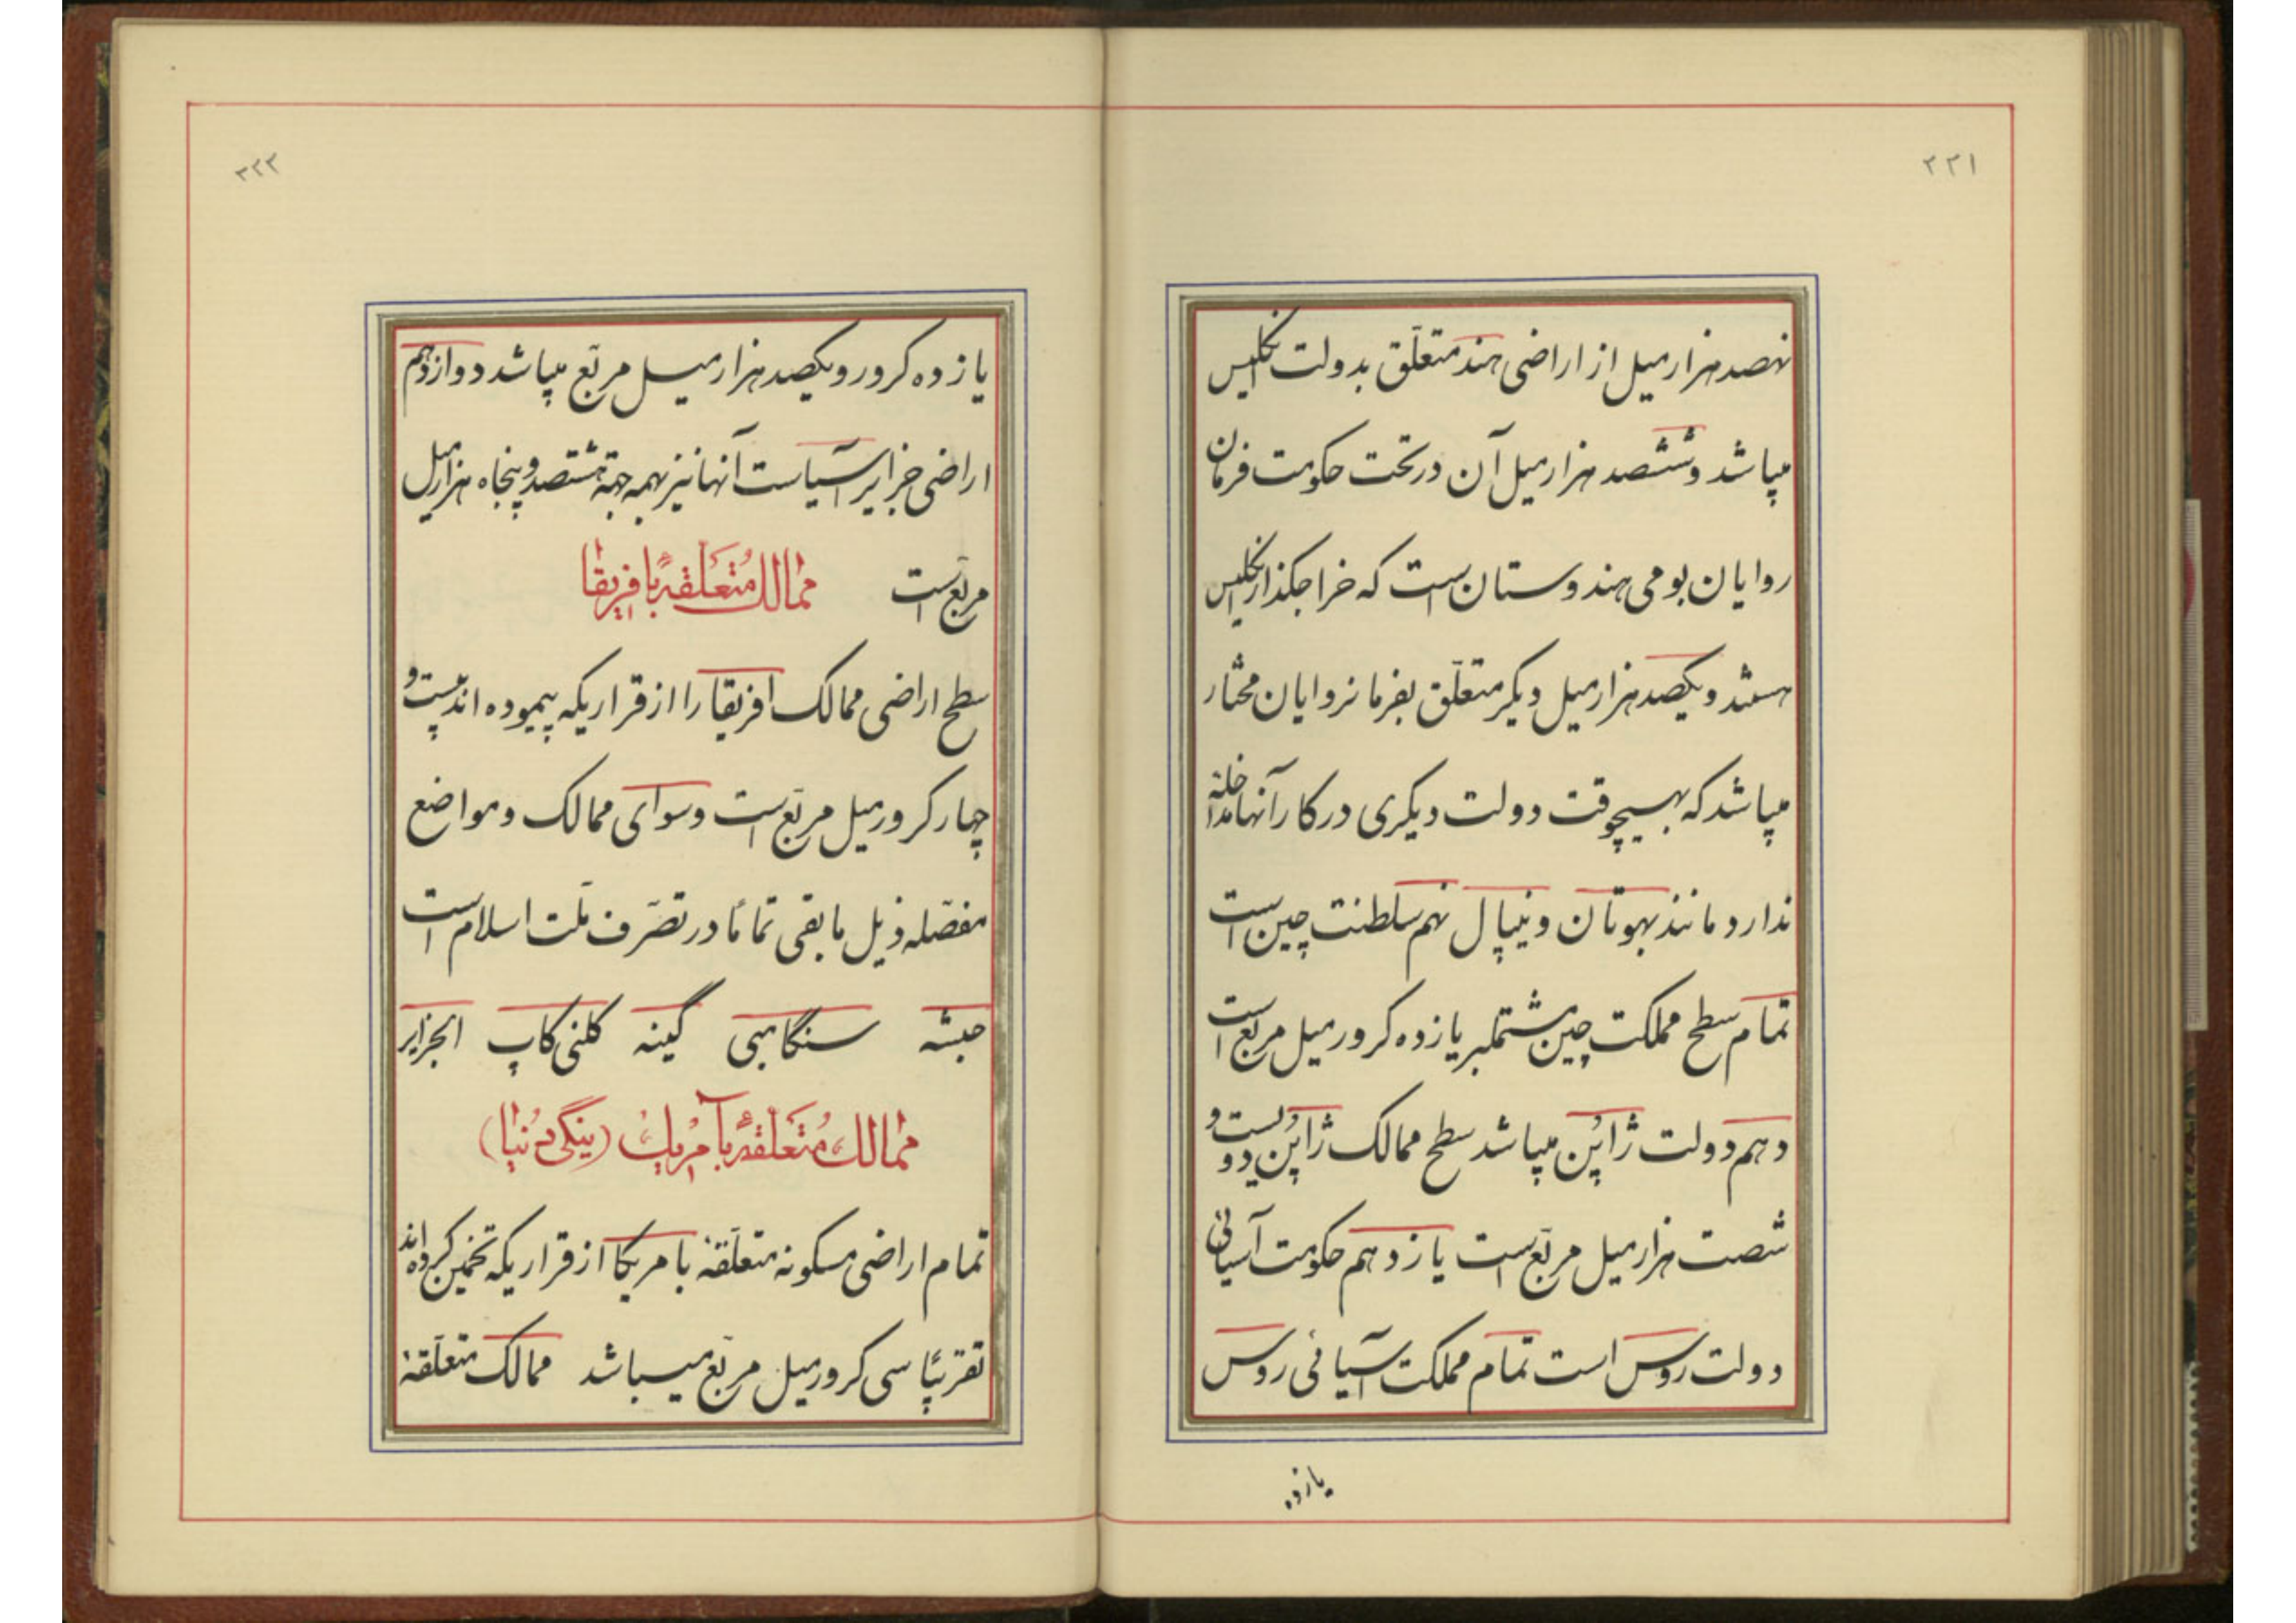 ۲۲۱
نهصد هزار میل از اراضی هند متعلّق بدولت انگلیس
میباشد و ششصد هزار میل آن در تحت حکومت فرمان
روایان بومی هندوستان است که خراجگذار انگلیس
هستند و یکصد هزار میل دیگر متعلّق بفرمانروایان مختار
میباشد که بهیچوقت دولت دیگری در کار آنها مداخله
ندارد مانند بهوتان و نیپال نهم سلطنت چین است
تمام سطح مملکت چین مشتمل بر یازده کرور میل مربع است
دهم دولت ژاپُن میباشد سطح ممالک ژاپُن دویست و
شصت هزار میل مربّع است یازدهم حکومت آسیائی
دولت روس است تمام مملکت آسیائی روس
یازده
۲۲۲
یازده کرور و یکصد هزار میل مربّع میباشد دوازدهم
اراضی جزایر آسیاست آنها نیز همه جهة هشتصد و پنجاه هزار میل
مربّع است ممالك مُتعَلّقهٔ بافریقا
سطح اراضی ممالک افریقا را از قراریکه پیموده اند بیست و
چهار کرور میل مربّع است و سوای ممالک و مواضع
مفصّله ذیل مابقی تماماً در تصرّف ملّت اسلام است
حبشه سنگامبی گینه کلنی کاپ الجزایر
ممالك مُتعَلّقهٔ بآمریك (ینگی دُنیا)
تمام اراضی مسکونه متعلّقهٔ بامریکا از قراریکه تخمین کرده اند
تقریبًا سی کرور میل مربّع میباشد ممالک متعلّقهٔ